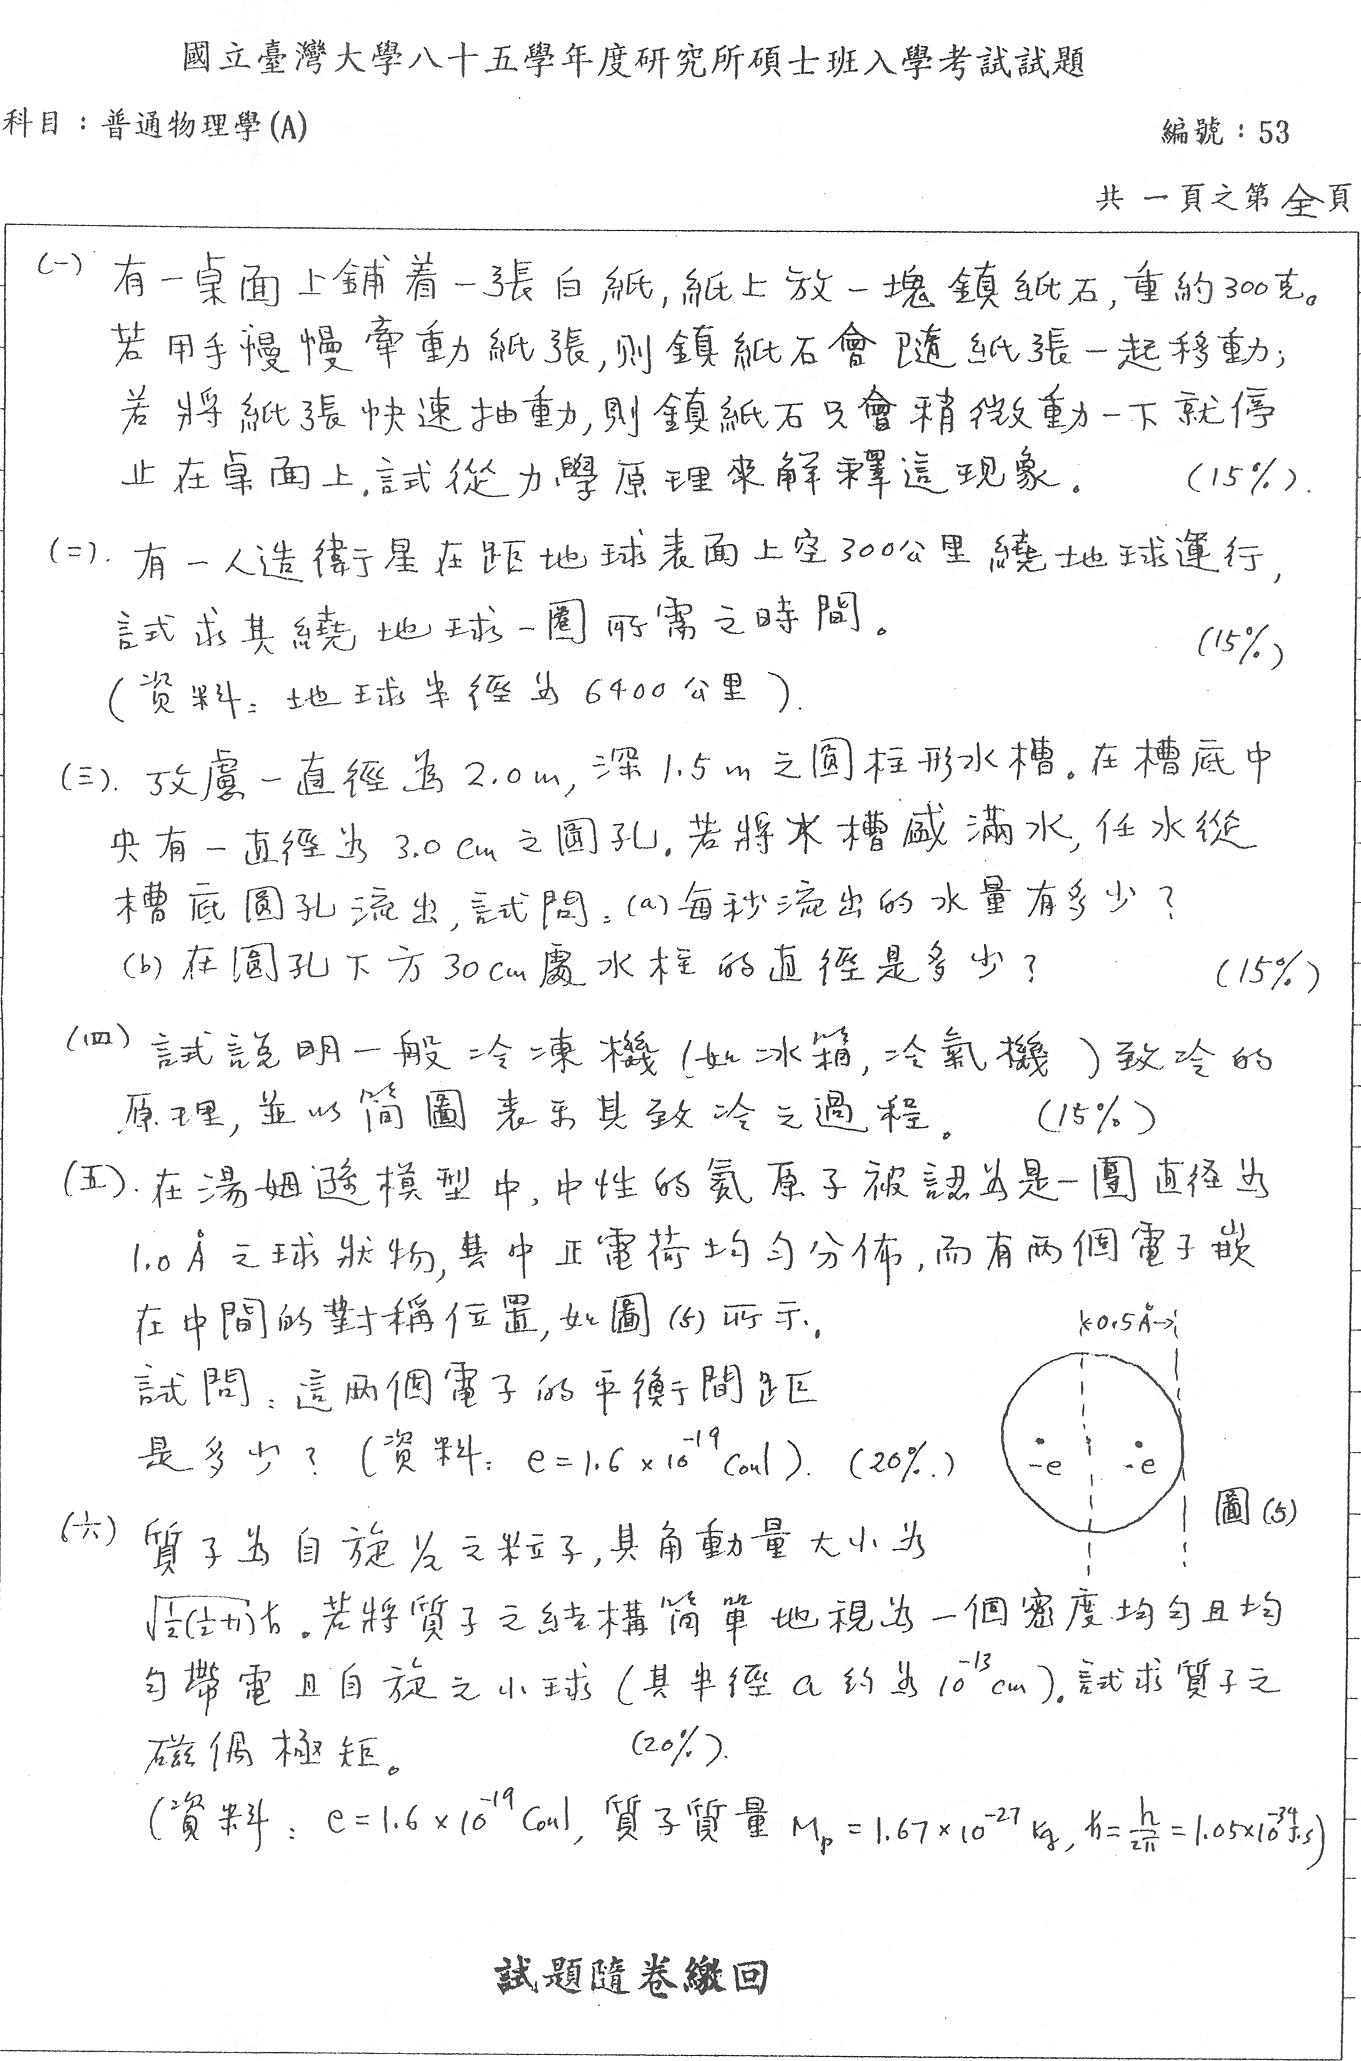 國立臺灣大學八十五學年度研究所碩士班入學考試試題
科目：普通物理學(A)
編號：53
共 一 頁之第 全 頁
(一) 有一桌面上鋪着一張白紙, 紙上放一塊鎮紙石, 重約300克。
若用手慢慢牽動紙張, 則鎮紙石會隨紙張一起移動;
若將紙張快速抽動, 則鎮紙石只會稍微動一下就停
止在桌面上. 試從力學原理來解釋這現象. (15%).
(二). 有一人造衛星在距地球表面上空300公里繞地球運行,
試求其繞地球一圈所需之時間。 (15%)
(資料: 地球半徑為6400公里).
(三). 攷慮一直徑為2.0m, 深1.5m之圓柱形水槽。在槽底中
央有一直徑為3.0cm之圓孔. 若將水槽盛滿水, 任水從
槽底圓孔流出, 試問: (a)每秒流出的水量有多少?
(b) 在圓孔下方30cm處水柱的直徑是多少? (15%)
(四) 試說明一般冷凍機(如冰箱, 冷氣機)致冷的
原理, 並以簡圖表示其致冷之過程。 (15%)
(五). 在湯姆遜模型中, 中性的氦原子被認為是一團直径為
1.0Å之球狀物, 其中正電荷均勻分佈, 而有两個電子嵌
在中間的對稱位置, 如圖(5)所示.
試問: 這两個電子的平衡間距
是多少? (資料: e=1.6×10⁻¹⁹Coul). (20%.)
0.5Å
-e -e
圖(5)
(六) 質子為自旋½之粒子, 其角動量大小為
√½(½+1) ħ. 若將質子之結構簡單地視為一個密度均勻且均
勻帶電且自旋之小球(其半徑a約為10⁻¹³cm). 試求質子之
磁偶極矩。 (20%).
(資料: e=1.6×10⁻¹⁹Coul, 質子質量 Mp=1.67×10⁻²⁷Kg, ħ=h/2π=1.05×10⁻³⁴J.s)
試題隨卷繳回